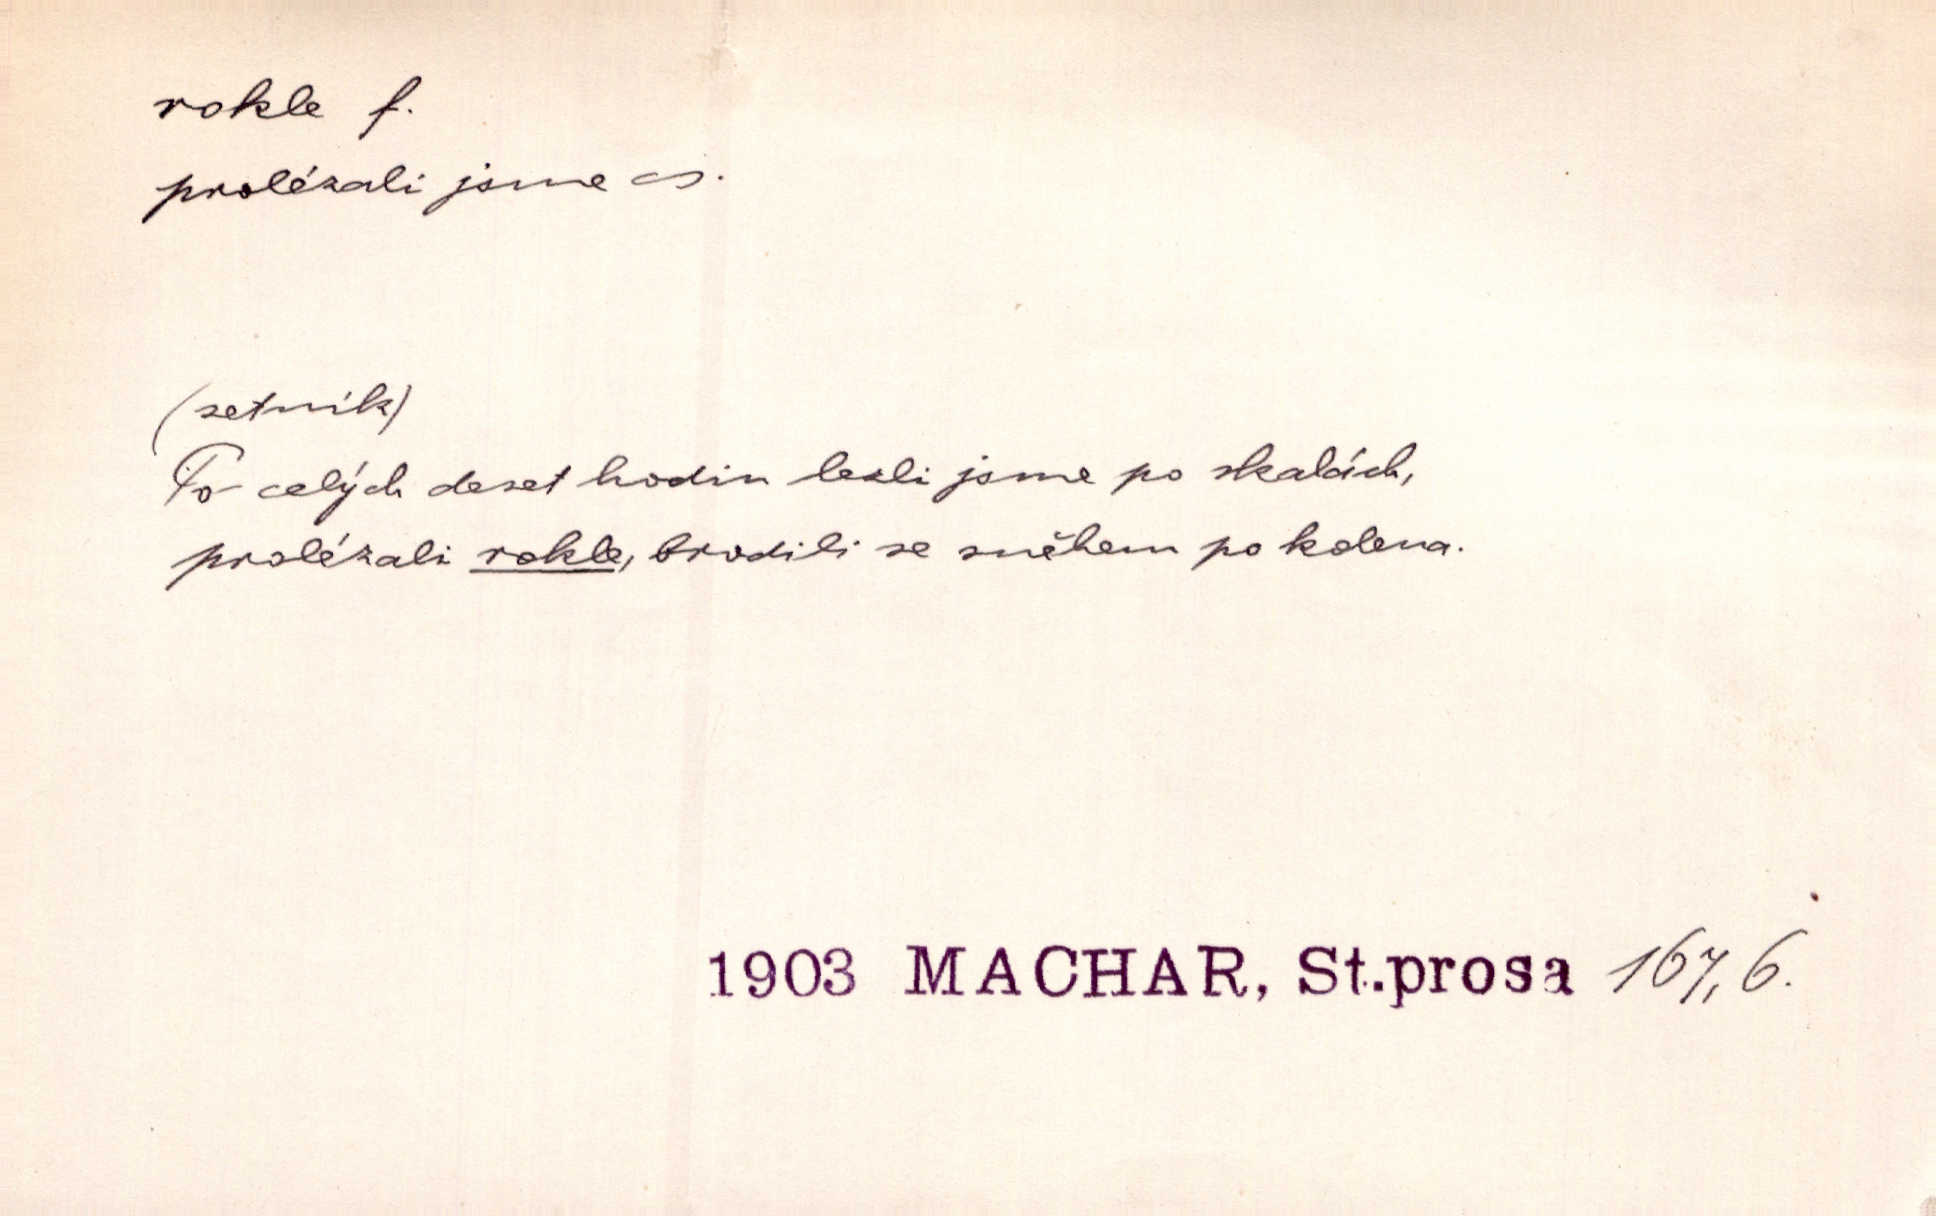 rokle f.
prolézali jsme ~.
(setník)
Po celých deset hodin lezli jsme po skalách,
prolézali rokle, brodili se sněhem po kolena.
1903 MACHAR, St.prosa 167, 6.